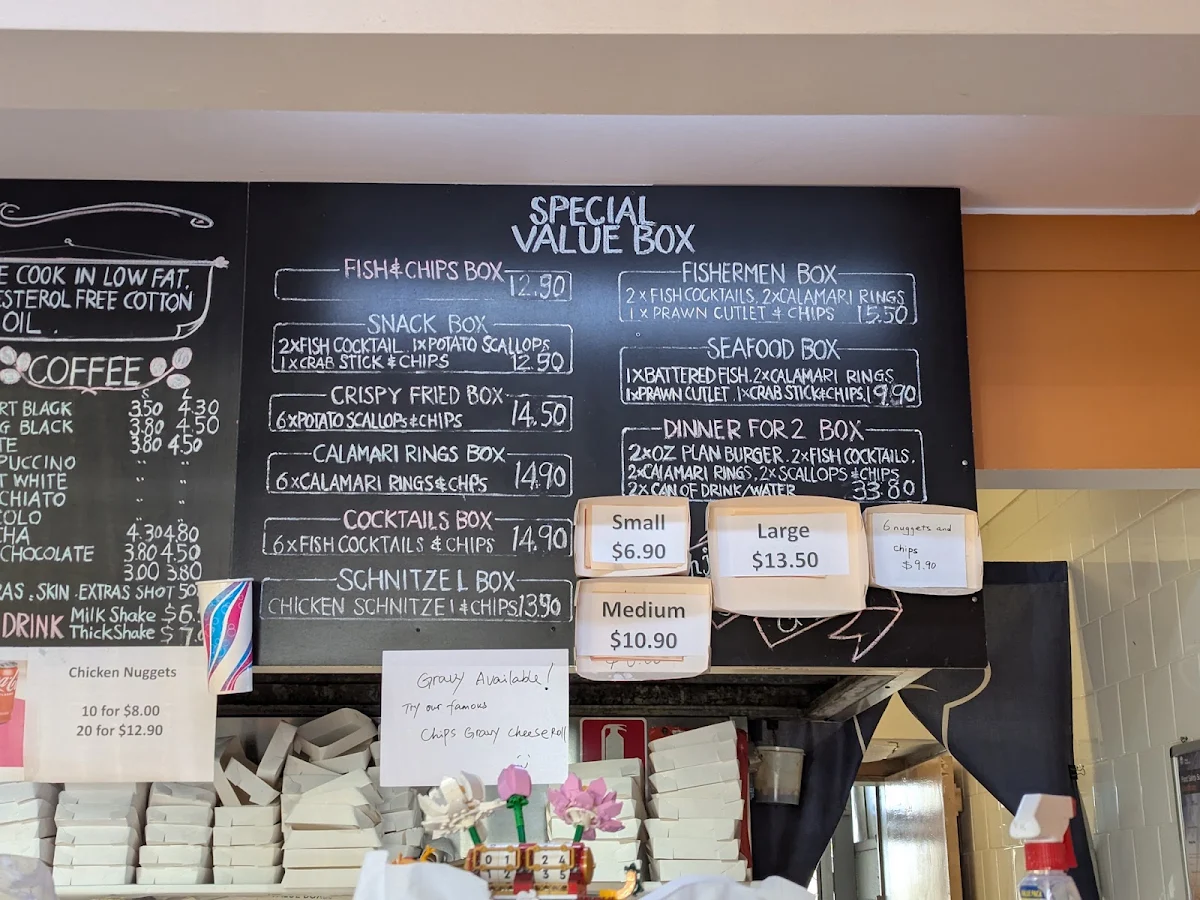 E COOK IN LOW FAT.
ESTEROL FREE COTTON
OIL.
COFFEE
S L
RT BLACK 3.50 4.30
G BLACK 3.80 4.50
TE 3.80 4.50
PUCCINO " "
T WHITE " "
CHIATO " "
OLO " "
HA 4.30 4.80
CHOCOLATE 3.80 4.50
3.00 3.80
RAS. SKIN. EXTRAS SHOT 50
DRINK Milk Shake $6.
ThickShake $7.
Chicken Nuggets
10 for $8.00
20 for $12.90
SPECIAL
VALUE BOX
FISH & CHIPS BOX
12.90
SNACK BOX
2xFISH COCKTAIL. 1xPOTATO SCALLOPS
1xCRAB STICK & CHIPS 12.50
CRISPY FRIED BOX
6xPOTATO SCALLOPS & CHIPS 14.50
CALAMARI RINGS BOX
6xCALAMARI RINGS & CHPS 14.90
COCKTAILS BOX
6xFISH COCKTAILS & CHIPS 14.90
SCHNITZEL BOX
CHICKEN SCHNITZEL & CHIPS 13.90
FISHERMEN BOX
2xFISHCOCKTAILS. 2xCALAMARI RINGS
1xPRAWN CUTLET & CHIPS 15.50
SEAFOOD BOX
1xBATTERED FISH. 2xCALAMARI RINGS
1xPRAWN CUTLET. 1xCRAB STICK & CHIPS. 19.90
DINNER FOR 2 BOX
2xOZ PLAN BURGER. 2xFISH COCKTAILS.
2xCALAMARI RINGS, 2xSCALLOPS & CHIPS
2xCAN OF DRINK/WATER 33.80
Small
$6.90
Large
$13.50
6 nuggets and
chips
$9.90
Medium
$10.90
Gravy Available!
Try our famous
Chips Gravy cheese Roll
0 1 2 4
2 3 5